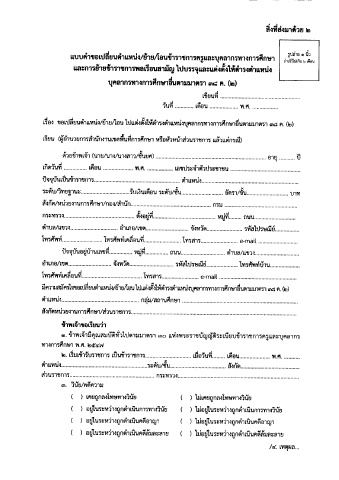 สิ่งที่ส่งมาด้วย ๒
รูปถ่าย ๑ นิ้ว
แบบคำขอเปลี่ยนตำแหน่ง/ย้าย/โอนข้าราชการครูและบุคลากรทางการศึกษา
และการย้ายข้าราชการพลเรือนสามัญ ไปบรรจุและแต่งตั้งให้ดำรงตำแหน่ง
บุคลากรทางการศึกษาอื่นตามมาตรา ๓๘ ค. (๒)
เขียนที่ ..................................
วันที่ ............ เดือน .................. พ.ศ. ................
เรื่อง ขอเปลี่ยนตำแหน่ง/ย้าย/โอน ไปแต่งตั้งให้ดำรงตำแหน่งบุคลากรทางการศึกษาอื่นตามมาตรา ๓๘ ค. (๒)
เรียน (ผู้อำนวยการสำนักงานเขตพื้นที่การศึกษา หรือหัวหน้าส่วนราชการ แล้วแต่กรณี)
ด้วยข้าพเจ้า (นาย/นาง/นางสาว/ชั้นยศ) .................................... อายุ ......... ปี
เกิดวันที่ ............ เดือน .................. พ.ศ. ............ เลขประจำตัวประชาชน ....................
ปัจจุบันเป็นข้าราชการ.................................... ตำแหน่ง....................................
ระดับ/วิทยฐานะ.................... รับเงินเดือน ระดับ/ชั้น.............. อัตรา/ขั้น................ บาท
สังกัด/หน่วยงานการศึกษา/กอง/สำนัก.............................. กรม ..............................
กระทรวง.............................. ตั้งอยู่ที่.................... หมู่ที่........ ถนน....................
ตำบล/แขวง.................... อำเภอ/เขต.................... จังหวัด.................... รหัสไปรษณีย์..............
โทรศัพท์................ โทรศัพท์เคลื่อนที่................ โทรสาร ................ e-mail ................
ปัจจุบันอยู่บ้านเลขที่............ หมู่ที่............ ถนน.................... ตำบล/แขวง....................
อำเภอ/เขต.................... จังหวัด.................... รหัสไปรษณีย์ ................ โทรศัพท์บ้าน................
โทรศัพท์เคลื่อนที่.................... โทรสาร.................... e-mail ....................
มีความสมัครใจขอเปลี่ยนตำแหน่ง/ย้าย/โอน ไปแต่งตั้งให้ดำรงตำแหน่งบุคลากรทางการศึกษาอื่นตามมาตรา ๓๘ ค. (๒)
ตำแหน่ง.............................. กลุ่ม/สถานศึกษา ..............................
สังกัดหน่วยงานการศึกษา/ส่วนราชการ..............................
ข้าพเจ้าขอเรียนว่า
๑. ข้าพเจ้ามีคุณสมบัติทั่วไปตามมาตรา ๓๐ แห่งพระราชบัญญัติระเบียบข้าราชการครูและบุคลากร
ทางการศึกษา พ.ศ. ๒๕๔๗
๒. เริ่มเข้ารับราชการ เป็นข้าราชการ.................... เมื่อวันที่........ เดือน............ พ.ศ. ............
ตำแหน่ง.............................. ระดับ/ชั้น.................... สังกัด....................
ส่วนราชการ.............................. กระทรวง..............................
๓. วินัย/คดีความ
( ) เคยถูกลงโทษทางวินัย ( ) ไม่เคยถูกลงโทษทางวินัย
( ) อยู่ในระหว่างถูกดำเนินการทางวินัย ( ) ไม่อยู่ในระหว่างถูกดำเนินการทางวินัย
( ) อยู่ในระหว่างถูกดำเนินคดีอาญา ( ) ไม่อยู่ในระหว่างถูกดำเนินคดีอาญา
( ) อยู่ในระหว่างถูกดำเนินคดีล้มละลาย ( ) ไม่อยู่ในระหว่างถูกดำเนินคดีล้มละลาย
/๔. เหตุผล...